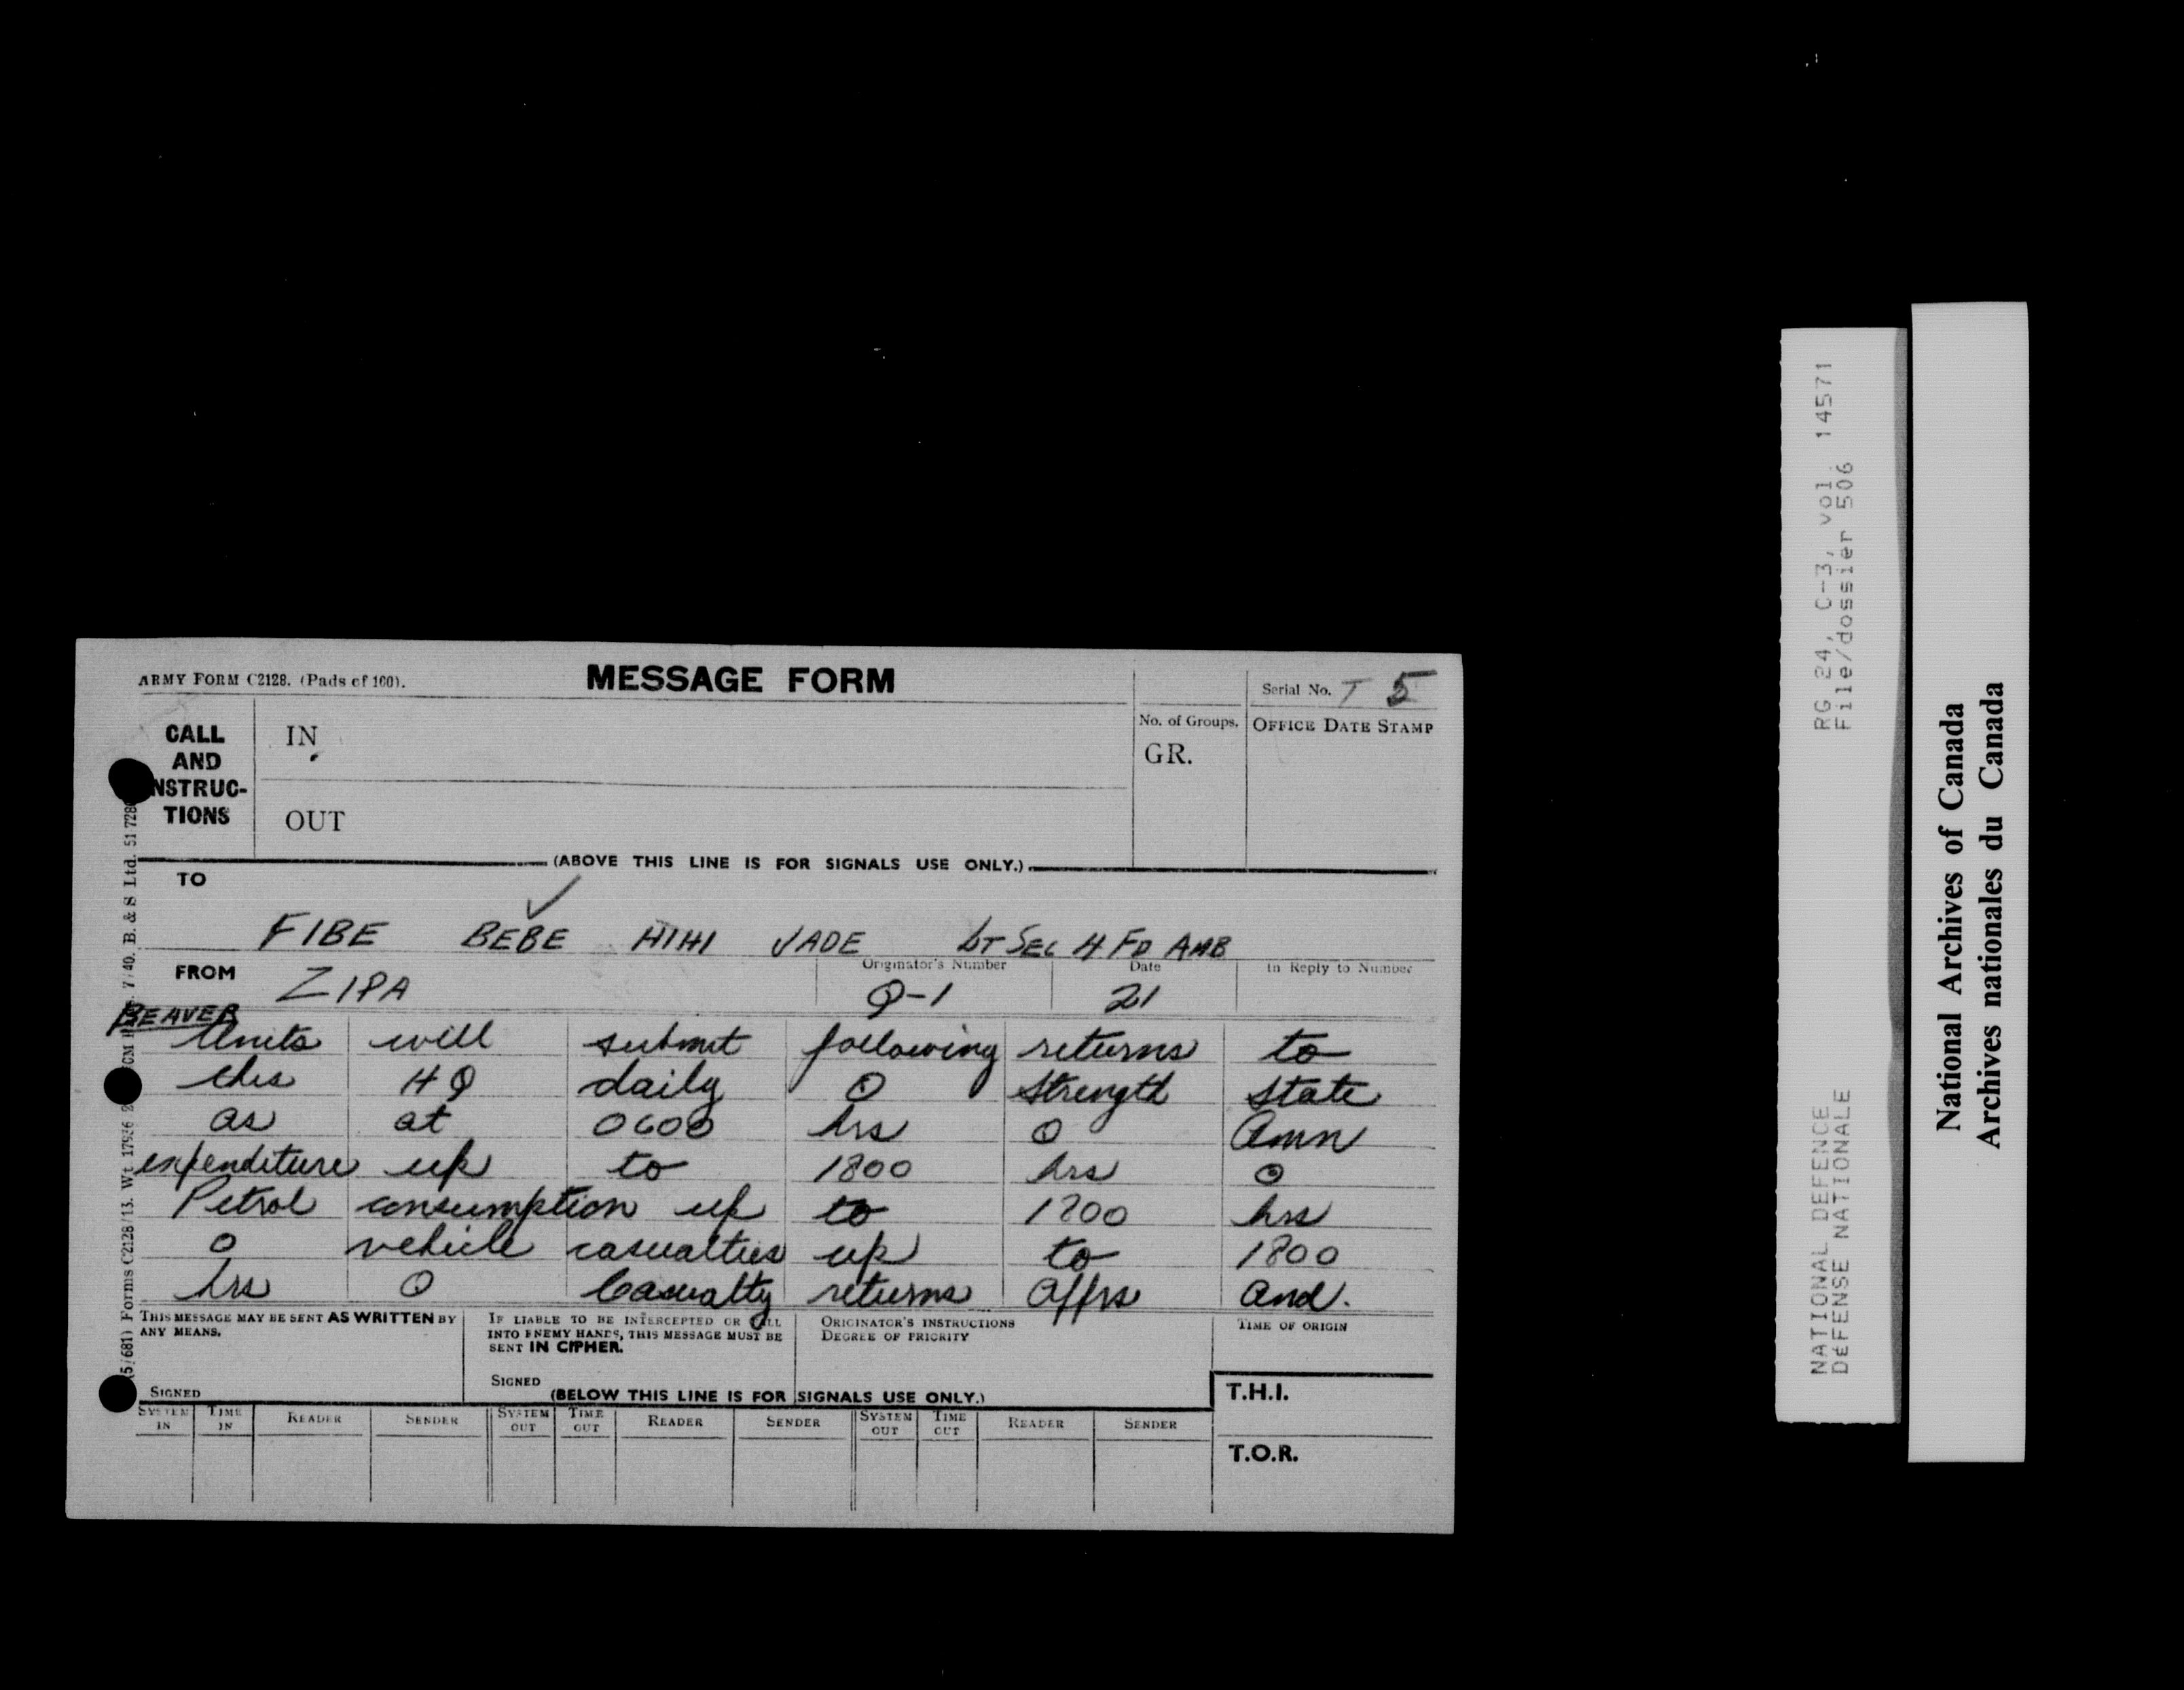 ARMY FORM C2128. (Pads of 100).
MESSAGE FORM
Serial No. T 5
CALL AND NSTRUC- TIONS
IN
OUT
No. of Groups.
GR.
OFFICE DATE STAMP
(ABOVE THIS LINE IS FOR SIGNALS USE ONLY.)
TO
FIBE BEBE HIHI JADE LT SEC 4 FD AMB
FROM ZIPA
Originator's Number Q-1
Date 21
In Reply to Number
BEAVER
Units will submit following returns to
this HQ daily O Strength state
as at 0600 hrs O Amn
expenditure up to 1800 hrs O
Petrol consumption up to 1200 hrs
O vehicle casualties up to 1800
hrs O Casualty returns Offrs and.
THIS MESSAGE MAY BE SENT AS WRITTEN BY
ANY MEANS.
SIGNED
IF LIABLE TO BE INTERCEPTED OR FALL
INTO ENEMY HANDS, THIS MESSAGE MUST BE
SENT IN CIPHER.
SIGNED
ORIGINATOR'S INSTRUCTIONS
DEGREE OF PRIORITY
TIME OF ORIGIN
(BELOW THIS LINE IS FOR SIGNALS USE ONLY.)
T.H.I.
T.O.R.
SYSTEM IN TIME IN READER SENDER SYSTEM OUT TIME OUT READER SENDER SYSTEM OUT TIME OUT READER SENDER
(5/681) Forms C2128/13. Wt. 17936 7/40. B. & S Ltd. 51 728
RG 24, C-3, vol. 14571
File/dossier 506
NATIONAL DEFENCE
DÉFENSE NATIONALE
National Archives of Canada
Archives nationales du Canada